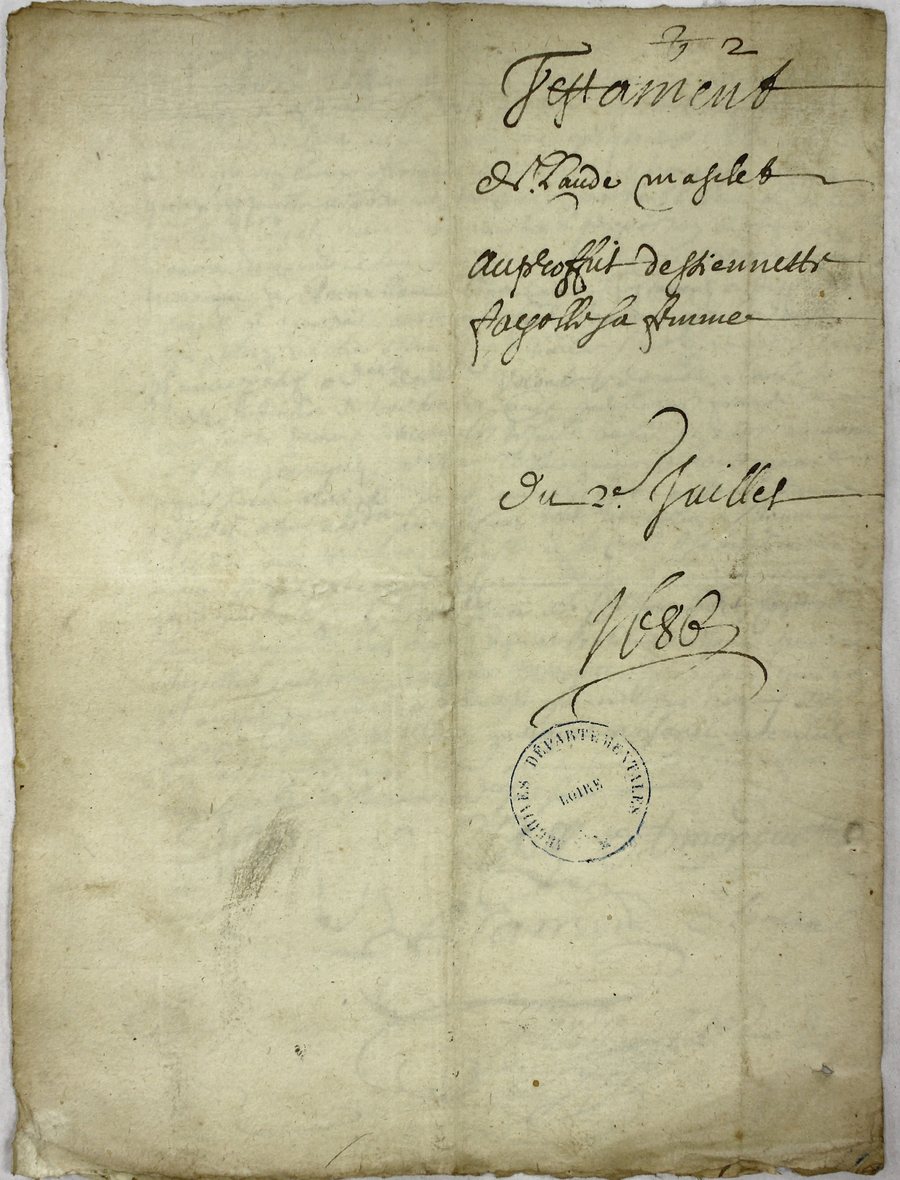 2
Testament
de Claude masclet
au proffit destiennette
fayolle sa femme
du 2e. Juillet
1686
ARCHIVES DÉPARTEMENTALES
LOIRE